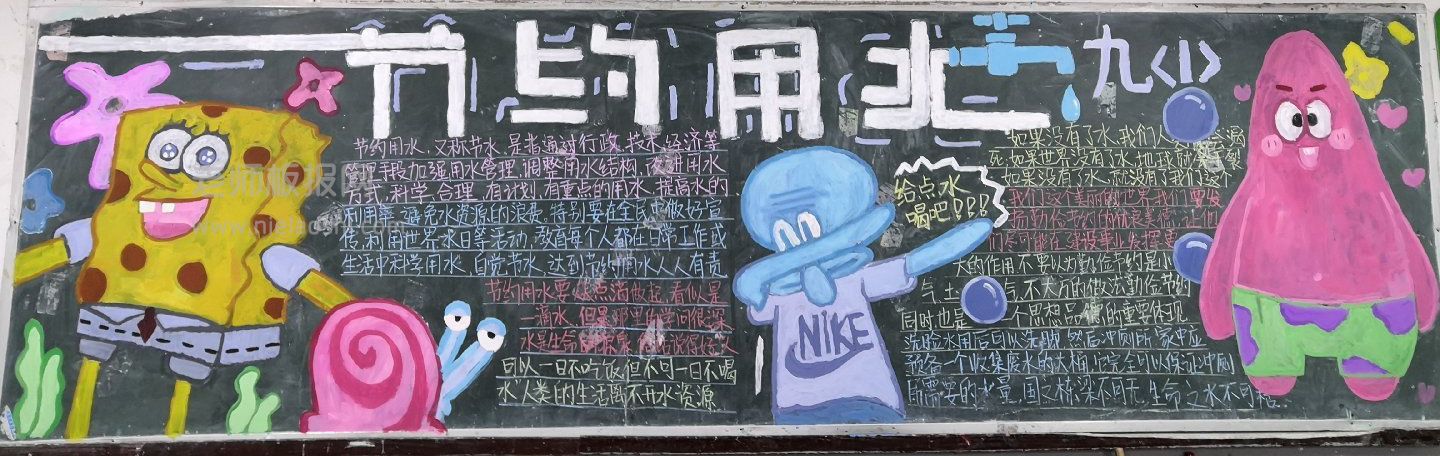 节约用水
九<1>
节约用水，又称节水，是指通过行政、技术、经济等
管理手段加强用水管理，调整用水结构，改进用水
方式，科学、合理、有计划、有重点的用水，提高水的
利用率，避免水资源的浪费。特别要在全民中做好宣
传，利用世界水日等活动，教育每个人都在日常工作或
生活中科学用水，自觉节水，达到节约用水人人有责
节约用水要从点滴做起，看似是
一滴水，但是那里的学问很深
水是生命
可以一日不吃饭，但不可一日不喝
水，人类的生活离不开水资源。
给点水
喝吧!!!
NIKE
如果没有了水，我们人
死；如果世界没有了水，地球就
如果没有了水，就没有了我们这个
我们这个美丽的世界，我们要发
扬勤俭节约的传统美德，让他
们尽可能在建设事业发挥更
大的作用，不要以为勤俭节约是小
气、土气，不大方的做法，勤俭节约
同时也是一个思想品德的重要体现
洗脸水用后可以洗脚，然后冲厕所，家中应
预备一个收集废水的大桶，它完全可以保证冲厕
所需要的水量，国之栋梁不可无，生命之水不可枯